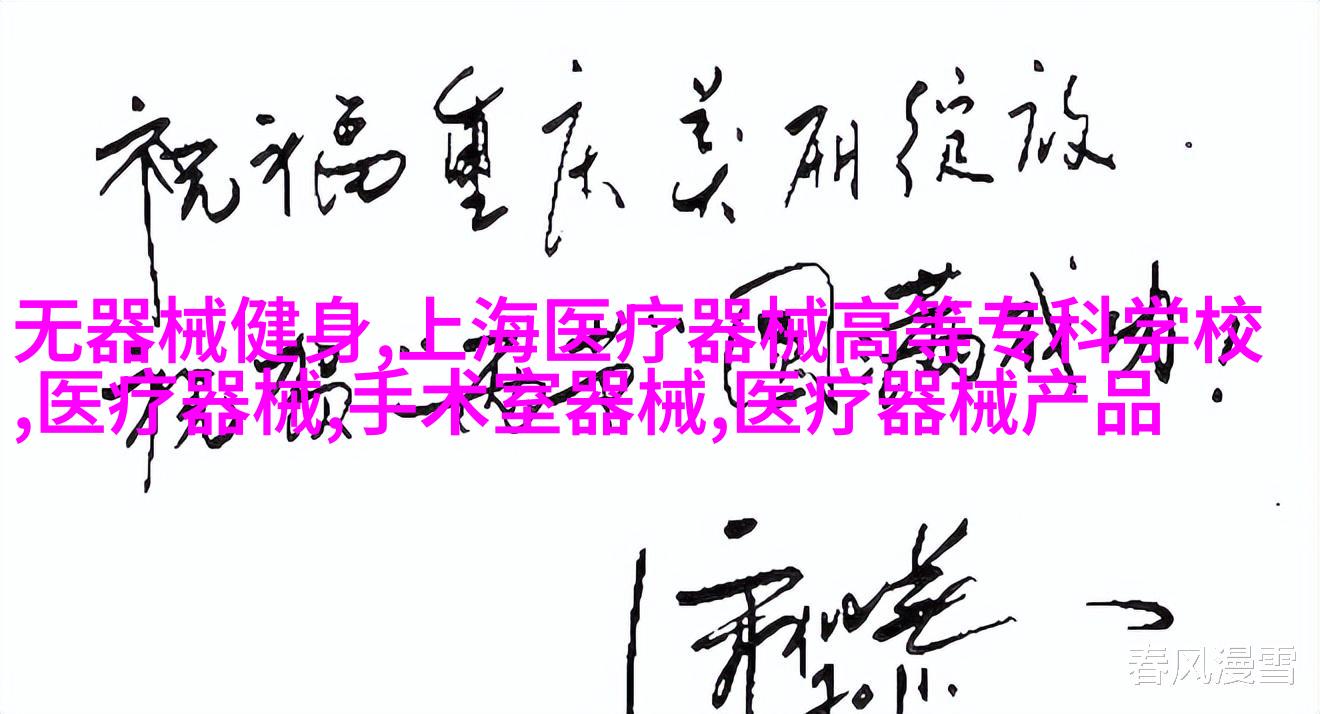 祝福重庆美丽绽放.
无器械健身,上海医疗器械高等专科学校
,医疗器械,手术室器械,医疗器械产品
祝福
2011.
春风漫雪